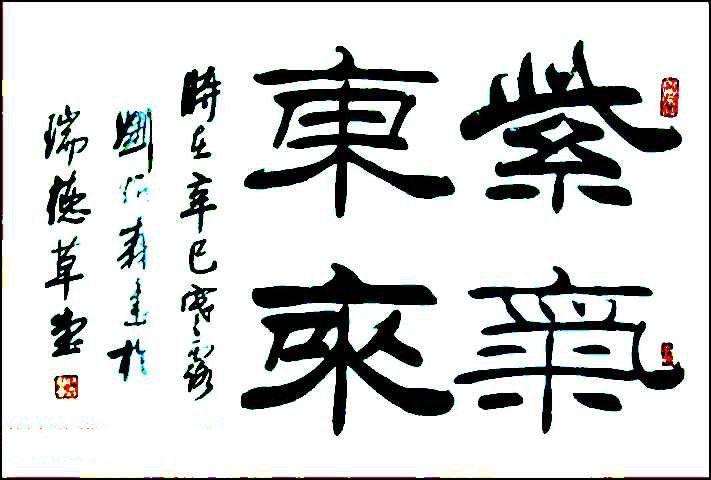 紫氣
東來
時在辛巳寒露
劉
於
瑞德草堂